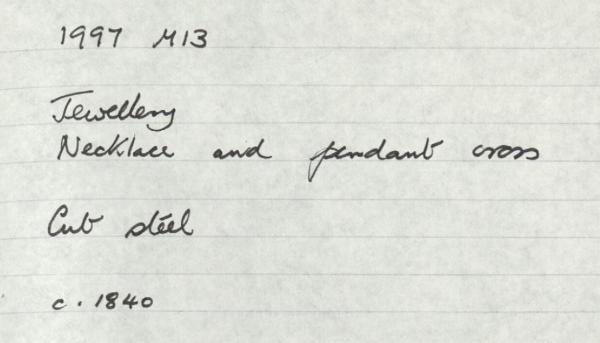 1997 M13
Jewellery
Necklace and pendant cross
Cut steel
c. 1840